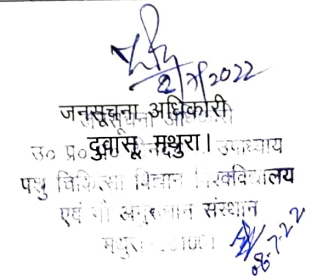 2/7/2022
जनसूचना अधिकारी
दुवासू, मथुरा।
उ० प्र० उपाध्याय
पशु चिकित्सा विज्ञान विश्वविद्यालय
एवं गो अनुसंधान संस्थान
मथुरा
08.7.22